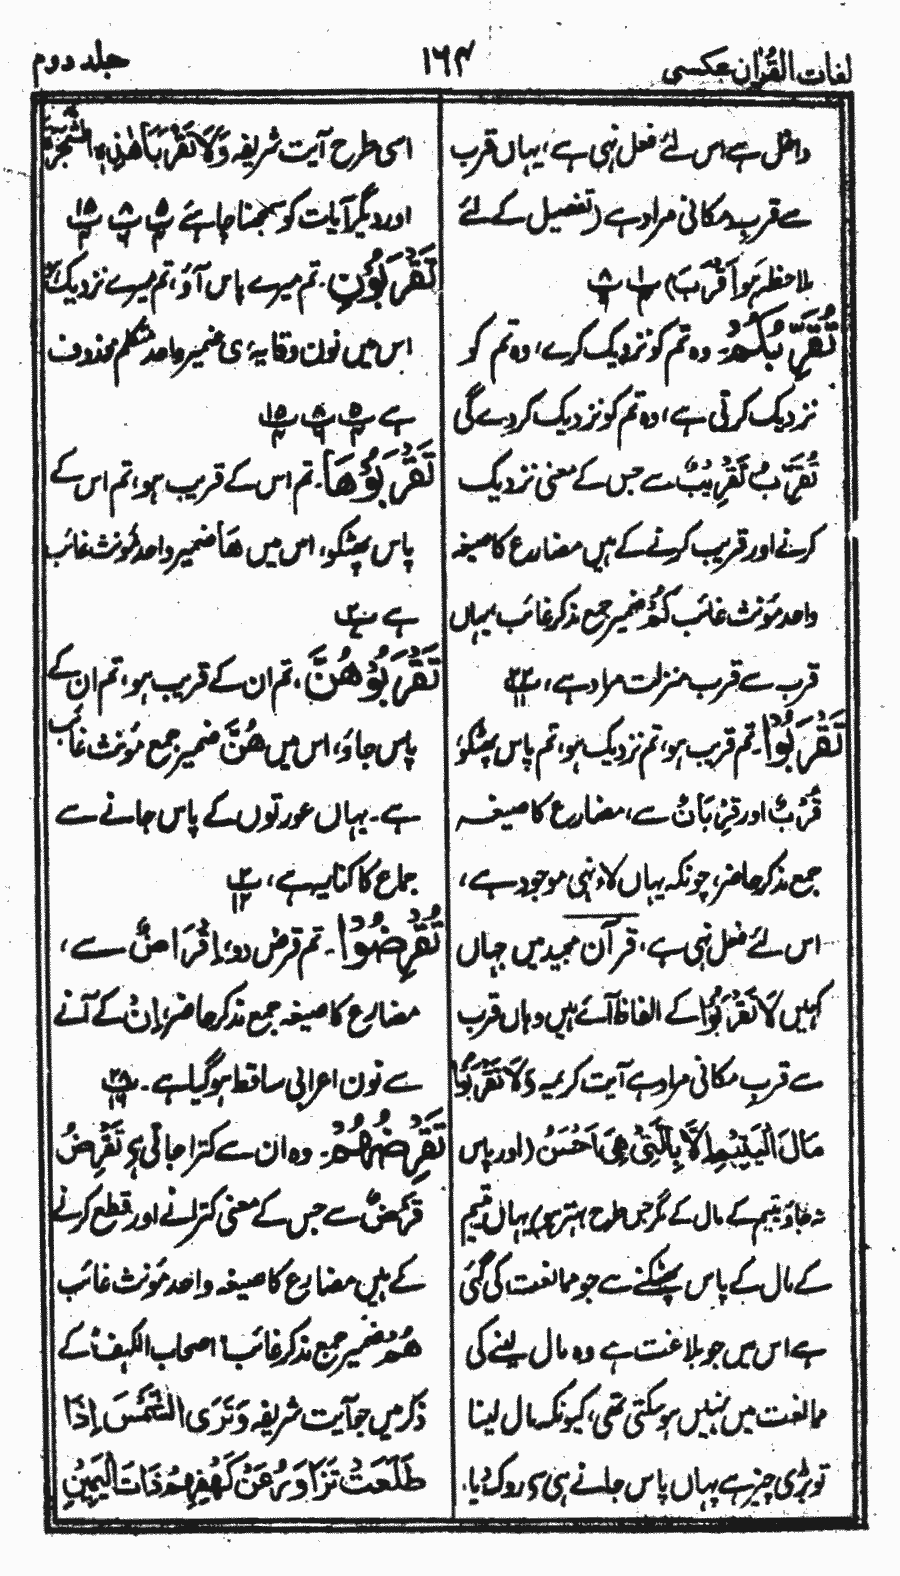 لغات القرآن عکسی
۱۶۴
جلد دوم
داخل ہے اس لئے فعل نہی ہے، یہاں قرب
سے قرب مکانی مراد ہے (تفصیل کے لئے
ملاحظہ ہو اَقْرَبَ)
تُقَرِّبُكُمْ۔ وہ تم کو نزدیک کرے، وہ تم کو
نزدیک کرتی ہے، وہ تم کو نزدیک کردے گی
تُقَرِّبُ تَقْرِیْبٌ سے جس کے معنی نزدیک
کرنے اور قریب کرنے کے ہیں مضارع کا صیغہ
واحد مؤنث غائب كُمْ ضمیر جمع مذکر غائب یہاں
قرب سے قرب منزلت مراد ہے، ۲۲/۱۱
تَقْرَبُوْا۔ تم قریب ہو، تم نزدیک ہو، تم پاس پھٹکو،
قُرْبٌ اور قِرْبَانٌ سے، مضارع کا صیغہ
جمع مذکر حاضر، چونکہ یہاں لاء نہی موجود ہے،
اس لئے فعل نہی ہے، قرآن مجید میں جہاں
کہیں لَا تَقْرَبُوْا کے الفاظ آئے ہیں وہاں قرب
سے قرب مکانی مراد ہے آیت کریمہ وَلَا تَقْرَبُوْا
مَالَ الْیَتِیْمِ اِلَّا بِالَّتِیْ هِیَ اَحْسَنُ (اور پاس
نہ جاؤ یتیم کے مال کے مگر جس طرح بہتر ہو) یہاں یتیم
کے مال کے پاس پھٹکنے سے جو ممانعت کی گئی
ہے اس میں جو بلاغت ہے وہ مال لینے کی
ممانعت میں نہیں ہوسکتی تھی، کیونکہ مال لینا
تو بڑی چیز ہے یہاں پاس جانے ہی سے روک دیا،
اسی طرح آیت شریفہ وَلَا تَقْرَبَا هٰذِهِ الشَّجَرَةَ
اور دیگر آیات کو سمجھنا چاہئے
تَقْرَبُوْنِ۔ تم میرے پاس آؤ، تم میرے نزدیک
اس میں نون وقایہ، ی ضمیر واحد متکلم محذوف
ہے
تَقْرَبُوْهَا۔ تم اس کے قریب ہو، تم اس کے
پاس پھٹکو، اس میں هَا ضمیر واحد مؤنث غائب
ہے
تَقْرَبُوْهُنَّ، تم ان کے قریب ہو، تم ان کے
پاس جاؤ، اس میں هُنَّ ضمیر جمع مؤنث غائب
ہے۔ یہاں عورتوں کے پاس جانے سے
جماع کا کنایہ ہے، ۲/۱۲
تُقْرِضُوْا۔ تم قرض دو، اِقْرَاضٌ سے،
مضارع کا صیغہ جمع مذکر حاضر، اِنْ کے آنے
سے نون اعرابی ساقط ہوگیا ہے۔ ۲۸/۱۶
تَقْرِضُهُمْ۔ وہ ان سے کترا جاتی ہے تَقْرِضُ
قَرْضٌ سے جس کے معنی کترانے اور قطع کرنے
کے ہیں مضارع کا صیغہ واحد مؤنث غائب
هُمْ ضمیر جمع مذکر غائب، اصحاب الکہف کے
ذکر میں جو آیت شریفہ وَتَرَی الشَّمْسَ اِذَا
طَلَعَتْ تَزَاوَرُ عَنْ كَهْفِهِمْ ذَاتَ الْیَمِیْنِ